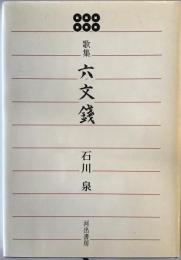 歌集
六文錢
石川 泉
河出書房